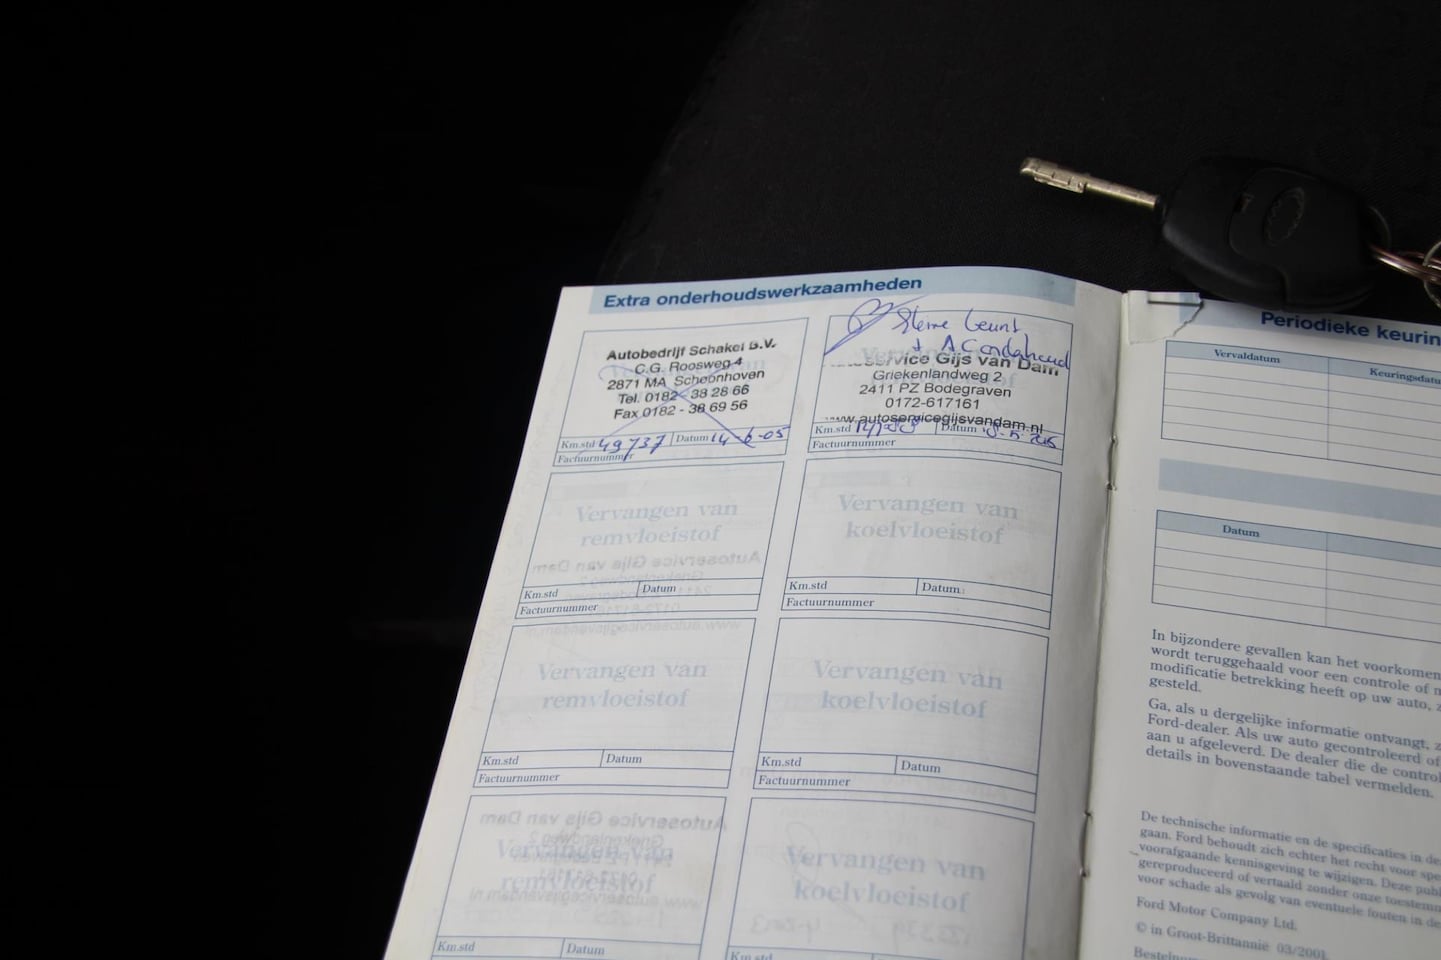 Extra onderhoudswerkzaamheden
Autobedrijf Schakel B.V.
C.G. Roosweg 4
2871 MA Schoonhoven
Tel. 0182 - 38 28 66
Fax 0182 - 38 69 56
Km.std 49737 Datum 14-6-05
Factuurnummer
+ AC onderhoud
service Gijs van Dam
Griekenlandweq 2
2411 PZ Bodegraven
0172-617161
www.autoservicegijsvandam.nl
Km.std Datum
Factuurnummer
Vervangen van
remvloeistof
Km.std Datum
Factuurnummer
Vervangen van
koelvloeistof
Km.std Datum
Factuurnummer
Vervangen van
remvloeistof
Km.std Datum
Factuurnummer
Vervangen van
koelvloeistof
Km.std Datum
Factuurnummer
Vervangen van
remvloeistof
Km.std Datum
Vervangen van
koelvloeistof
Km.std Datum
Periodieke keurin
Vervaldatum Keuringsdatu
Datum
In bijzondere gevallen kan het voorkomen
wordt teruggehaald voor een controle of
modificatie betrekking heeft op uw auto,
gesteld.
Ga, als u dergelijke informatie ontvangt,
Ford-dealer. Als uw auto gecontroleerd of
aan u afgeleverd. De dealer die de control
details in bovenstaande tabel vermelden.
De technische informatie en de specificaties in de
gaan. Ford behoudt zich echter het recht voor spe
voorafgaande kennisgeving te wijzigen. Deze publ
gereproduceerd of vertaald zonder onze toestemm
voor schade als gevolg van eventuele fouten in de
Ford Motor Company Ltd.
© in Groot-Brittannië 03/2001
Bestelnu